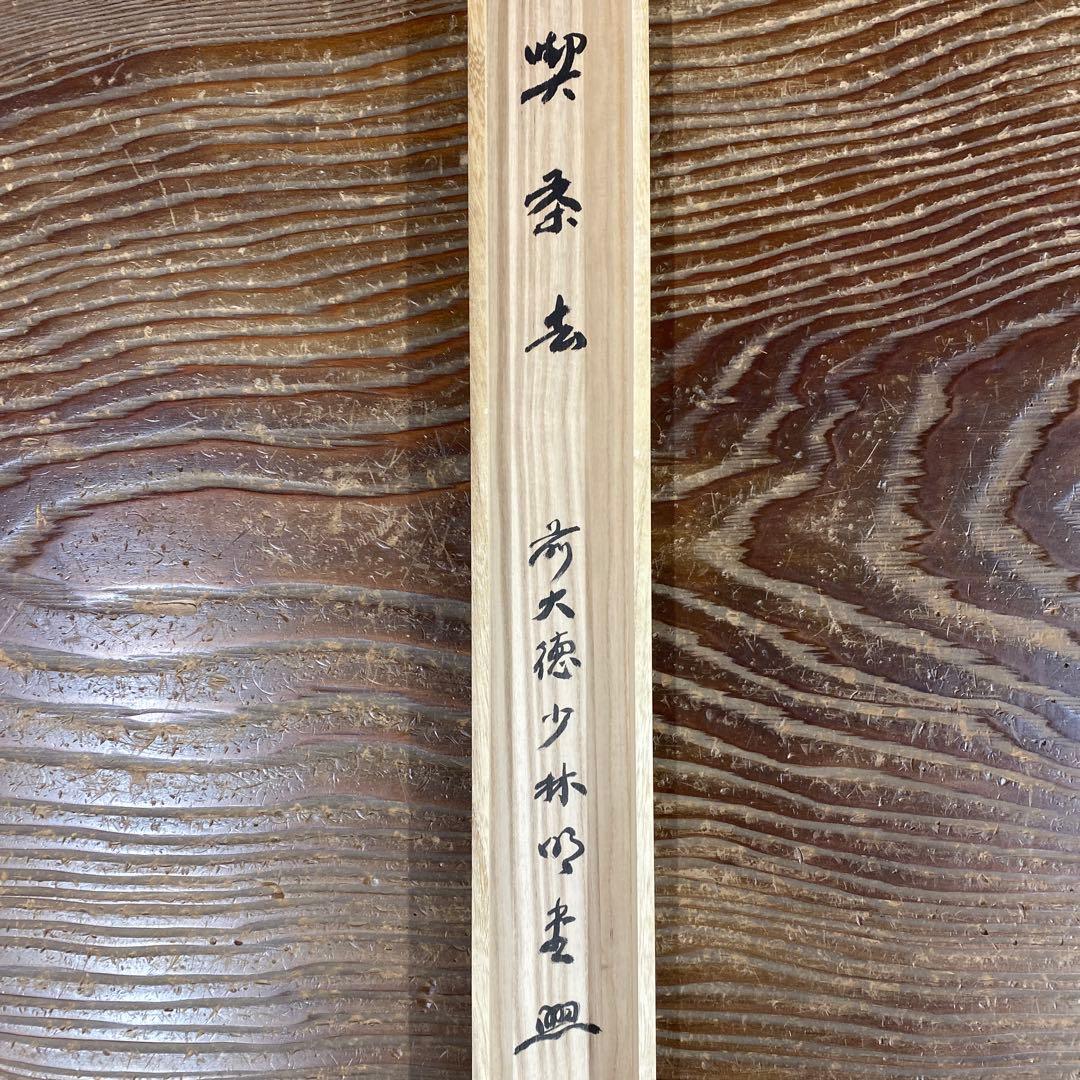 喫茶去 前大徳少林明堂